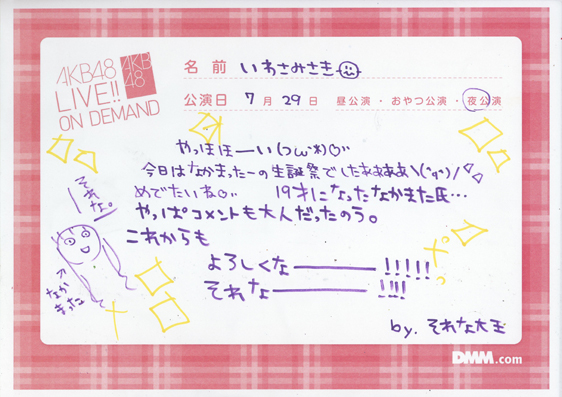 AKB48
LIVE!!
ON DEMAND
AKB
48
名前 いわさみさき
公演日 7月29日 昼公演・おやつ公演・夜公演
やっほほーい(つω
今日はなかまったーの生誕祭でしたぁぁぁぁ\(^o^)/
めでたいね♡ 19才になったなかまた氏…
やっぱコメントも大人だったのう。
これからも
よろしくなーーーー!!!!!
それなーーーー!!!!
by. それな大王
それな。
なか
まった
DMM.com